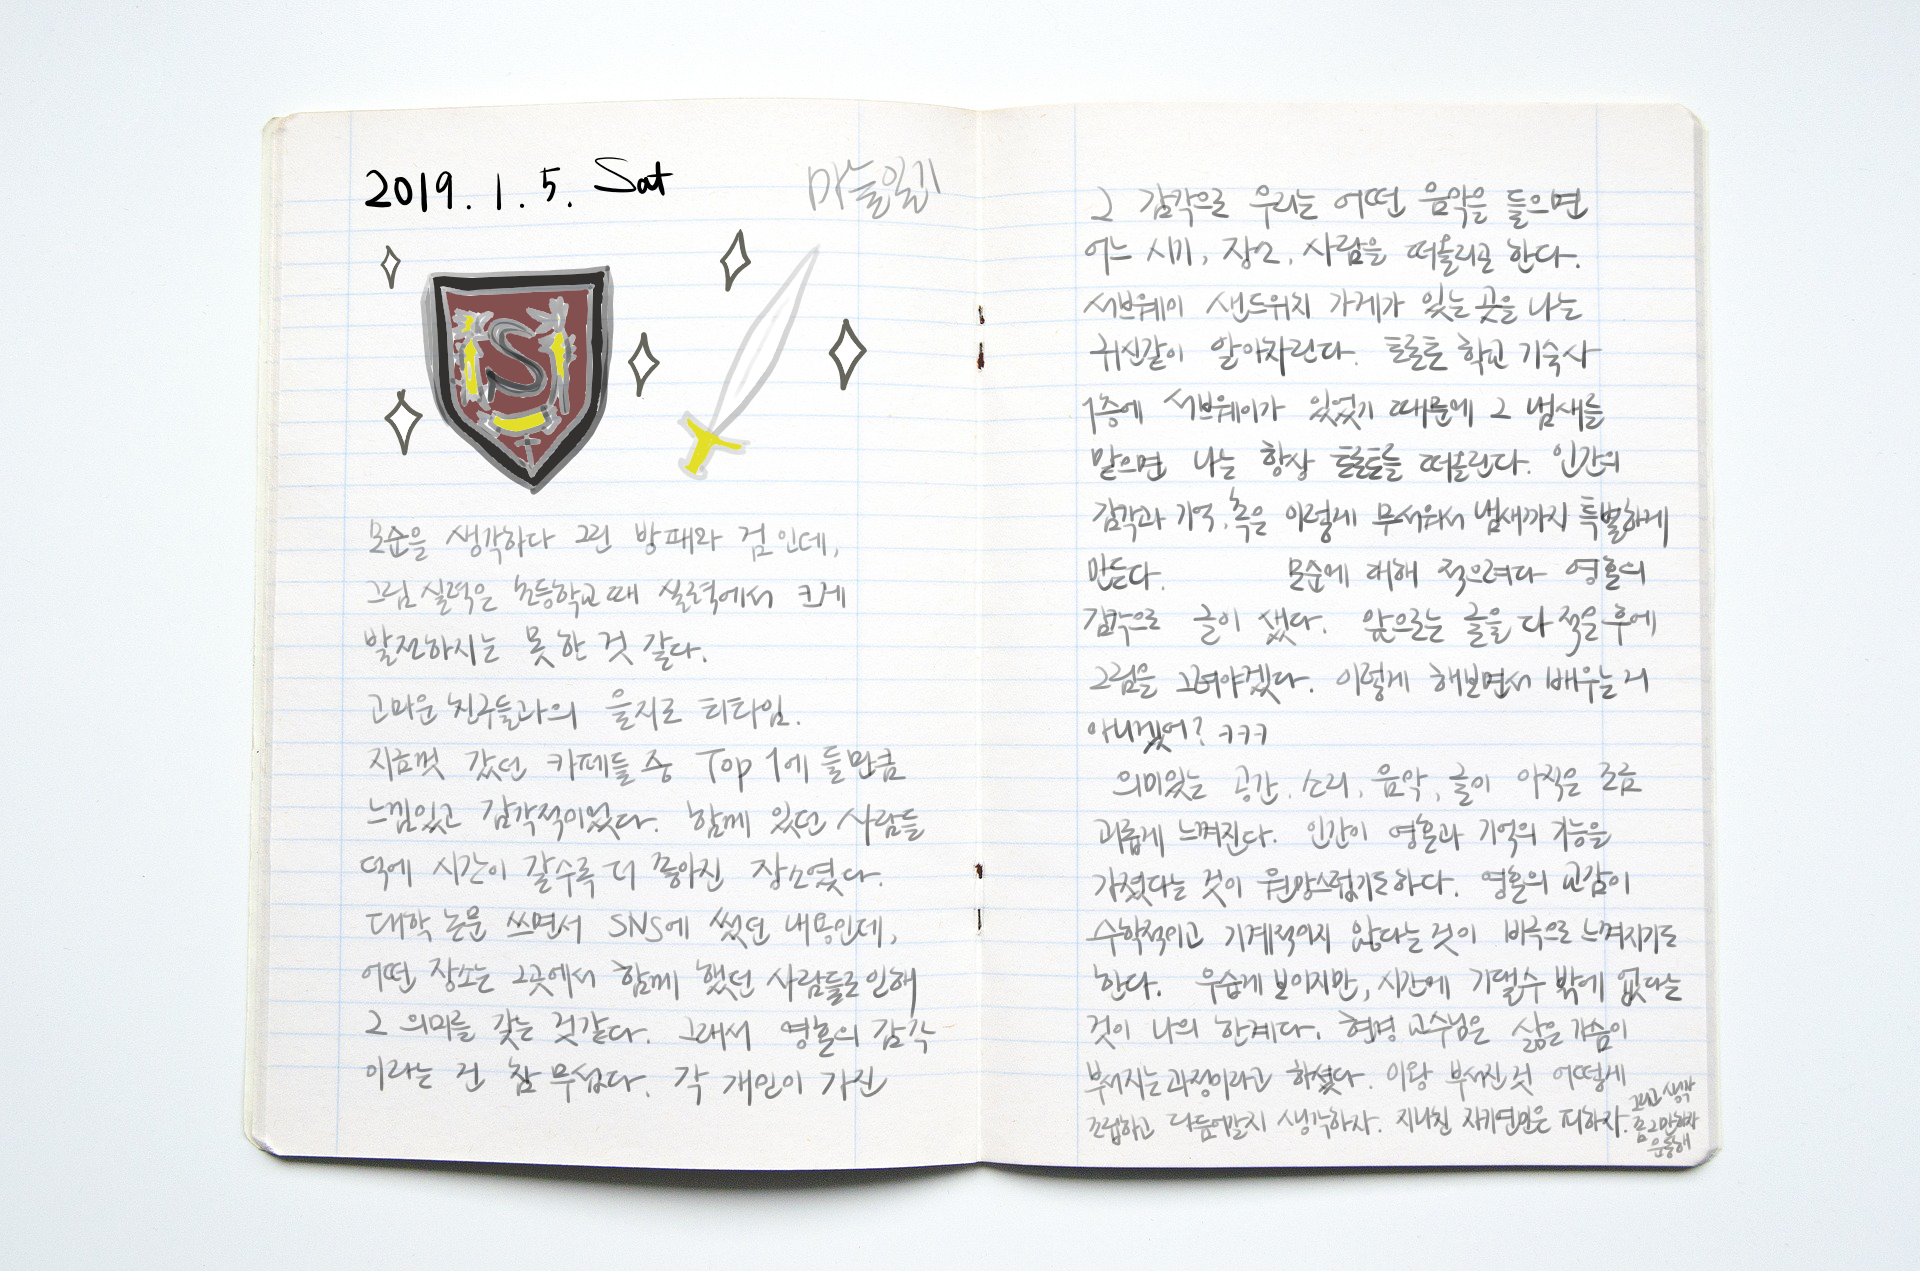 2019. 1. 5. Sat
마늘일기
S
모순을 생각하다 그린 방패와 검인데,
그림 실력은 초등학교 때 실력에서 크게
발전하지는 못한 것 같다.
고마운 친구들과의 을지로 티타임.
지금껏 갔던 카페들 중 Top 1에 들만큼
느낌있고 감각적이었다. 함께 있던 사람들
덕에 시간이 갈수록 더 좋아진 장소였다.
대학 논문 쓰면서 SNS에 썼던 내용인데,
어떤 장소는 그곳에서 함께 했던 사람들로 인해
그 의미를 갖는 것같다. 그래서 영혼의 감각
이라는 건 참 무섭다. 각 개인이 가진
그 감각으로 우리는 어떤 음악을 들으면
어느 시기, 장소, 사람을 떠올리곤 한다.
서브웨이 샌드위치 가게가 있는 곳을 나는
귀신같이 알아차린다. 토론토 학교 기숙사
1층에 서브웨이가 있었기 때문에 그 냄새를
맡으면 나는 항상 토론토를 떠올린다. 인간의
감각과 기억, 혹은 이렇게 무서워서 냄새까지 특별하게
만든다. 모순에 대해 적으려다 영혼의
감각으로 글이 샜다. 앞으로는 글을 다 적은 후에
그림을 그려야겠다. 이렇게 해보면서 배우는거
아니겠어? ㅋㅋㅋ
의미있는 공간, 소리, 음악, 글이 아직은 조금
괴롭게 느껴진다. 인간이 영혼과 기억의 기능을
가졌다는 것이 원망스럽기도하다. 영혼의 교감이
수학적이고 기계적이지 않다는 것이 비극으로 느껴지기도
한다. 우습게 보이지만, 시간에 기댈수 밖에 없다는
것이 나의 한계다. 현경 교수님은 삶은 가슴이
부서지는 과정이라고 하셨다. 이왕 부서진 것 어떻게
조립하고 다듬어갈지 생각하자. 지나친 자기연민은 피하자.
그리고 생각
좀 그만하자
운동해